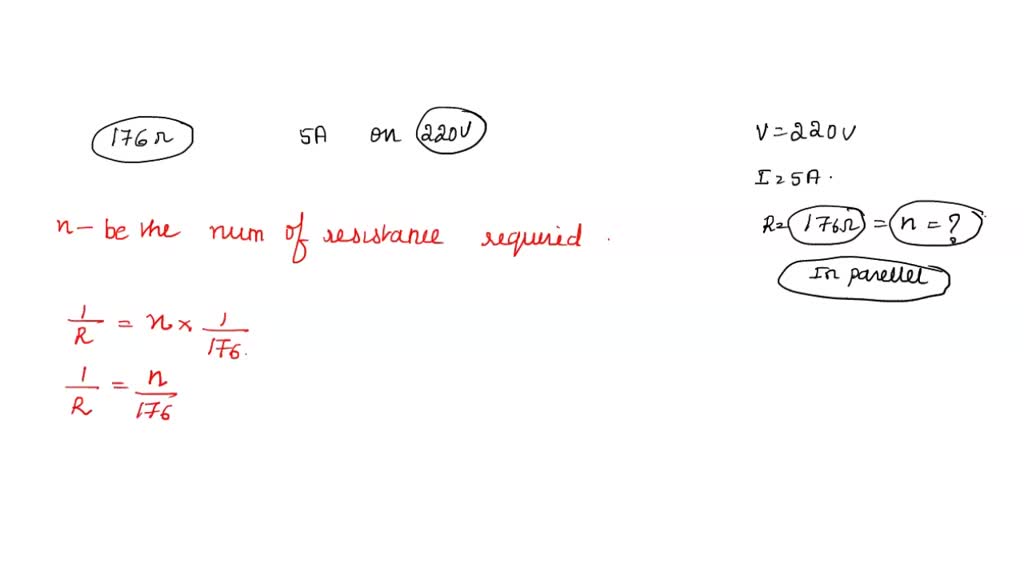 176Ω 5A on 220V
V=220V
I=5A.
R=176Ω = n=?
In parellel
n- be the num of resistance required.
1/R = n × 1/176.
1/R = n/176